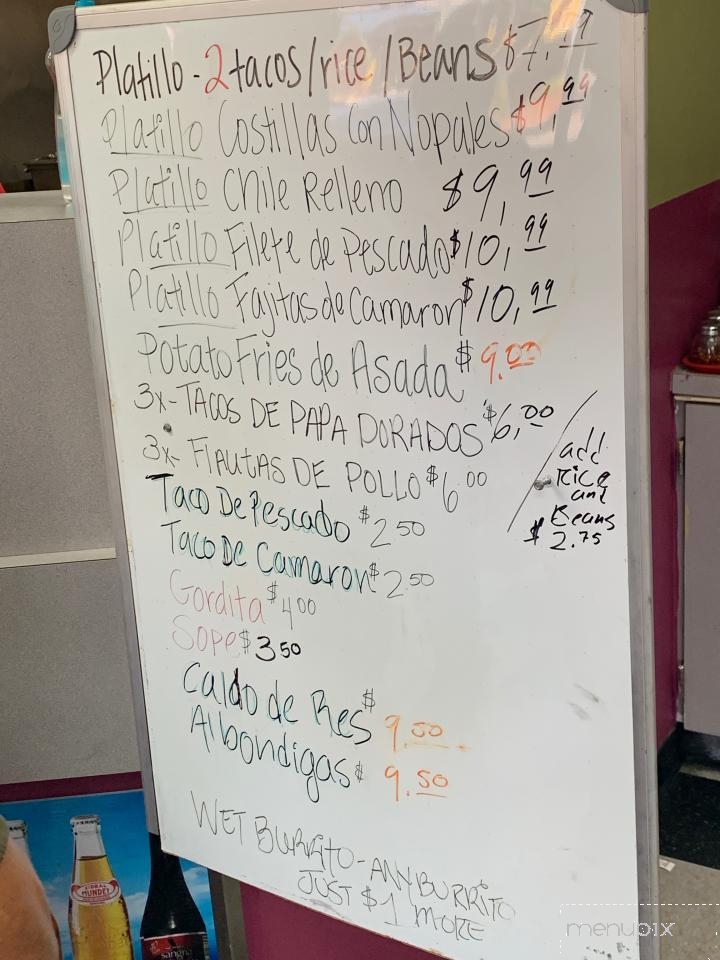 Platillo - 2 tacos/rice/Beans $7.99
Platillo Costillas Con Nopales $9,99
Platillo Chile Relleno $9,99
Platillo Filete de Pescado $10,99
Platillo Fajitas de Camaron $10,99
Potato Fries de Asada $9.00
3x- TACOS DE PAPA DORADOS $6,00
3x- FlAUTAS DE POLLO $6 00
add
Rice
and
Beans
$2.75
Taco De Pescado $2.50
Taco De Camaron $2 50
Gordita $4 00
Sope $3 50
Caldo de Res $
Albondigas $
9.50
WET BURRITO - ANY BURRITO
JUST $1 MORE
SIDRAL
MUNDET
sangria
menupix